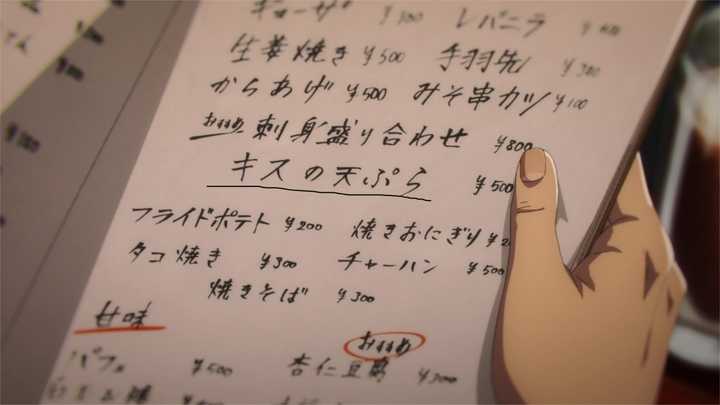 ギョーザ ¥300 レバニラ
生姜焼き ¥500 手羽先 ¥300
からあげ ¥500 みそ串カツ ¥100
おすすめ 刺身盛り合わせ ¥800
キスの天ぷら ¥500
フライドポテト ¥200 焼きおにぎり
タコ焼き ¥300 チャーハン ¥500
焼きそば ¥300
甘味
おすすめ
パフェ ¥500 杏仁豆腐 ¥300